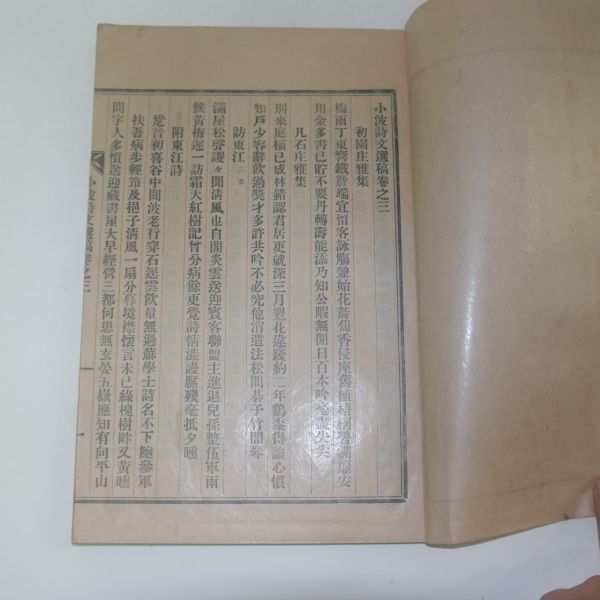 小波詩文選稿卷之三
初園庄雅集
梅雨丁東響鐵簷端宜留客詠觴兼始花薝蔔香侵座舊植梧桐翠滿簷安
用金多書已貯不要丹轉壽能添乃知公暇無閒日百本吟毫盡失尖
几石庄雅集
別來庭植已成林錯認君居更就深三月鶯花違踐約二年鷄黍得論心慣
知戶少容辭飮過獎才多許共吟不必究他消遣法松間棊子竹間琴
訪東江二首
滿屋松聲謖々聞淸風也自闢炎雲送迎賓客聯盟主進退兒孫整伍軍雨
候黃梅迎一訪霜天紅樹記曾分病餘更覺詩情澁謾腐殘毫抵夕曛
附東江詩
跫音初喜谷中聞波老行穿石逕雲飮量無過蘇學士詩名不下鮑參軍
扶吾病步輕笻及挹子淸風一扇分暮境襟懷言未已綠槐樹畔又黃曛
問字人多慣送迎藏書屋大早經營三都何患無玄晏五嶽應知有向平山
小波詩文選稿卷之三
一